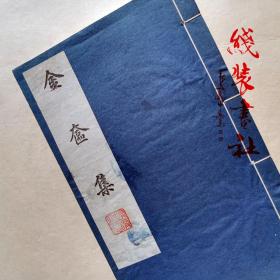 金奩集
线装书社